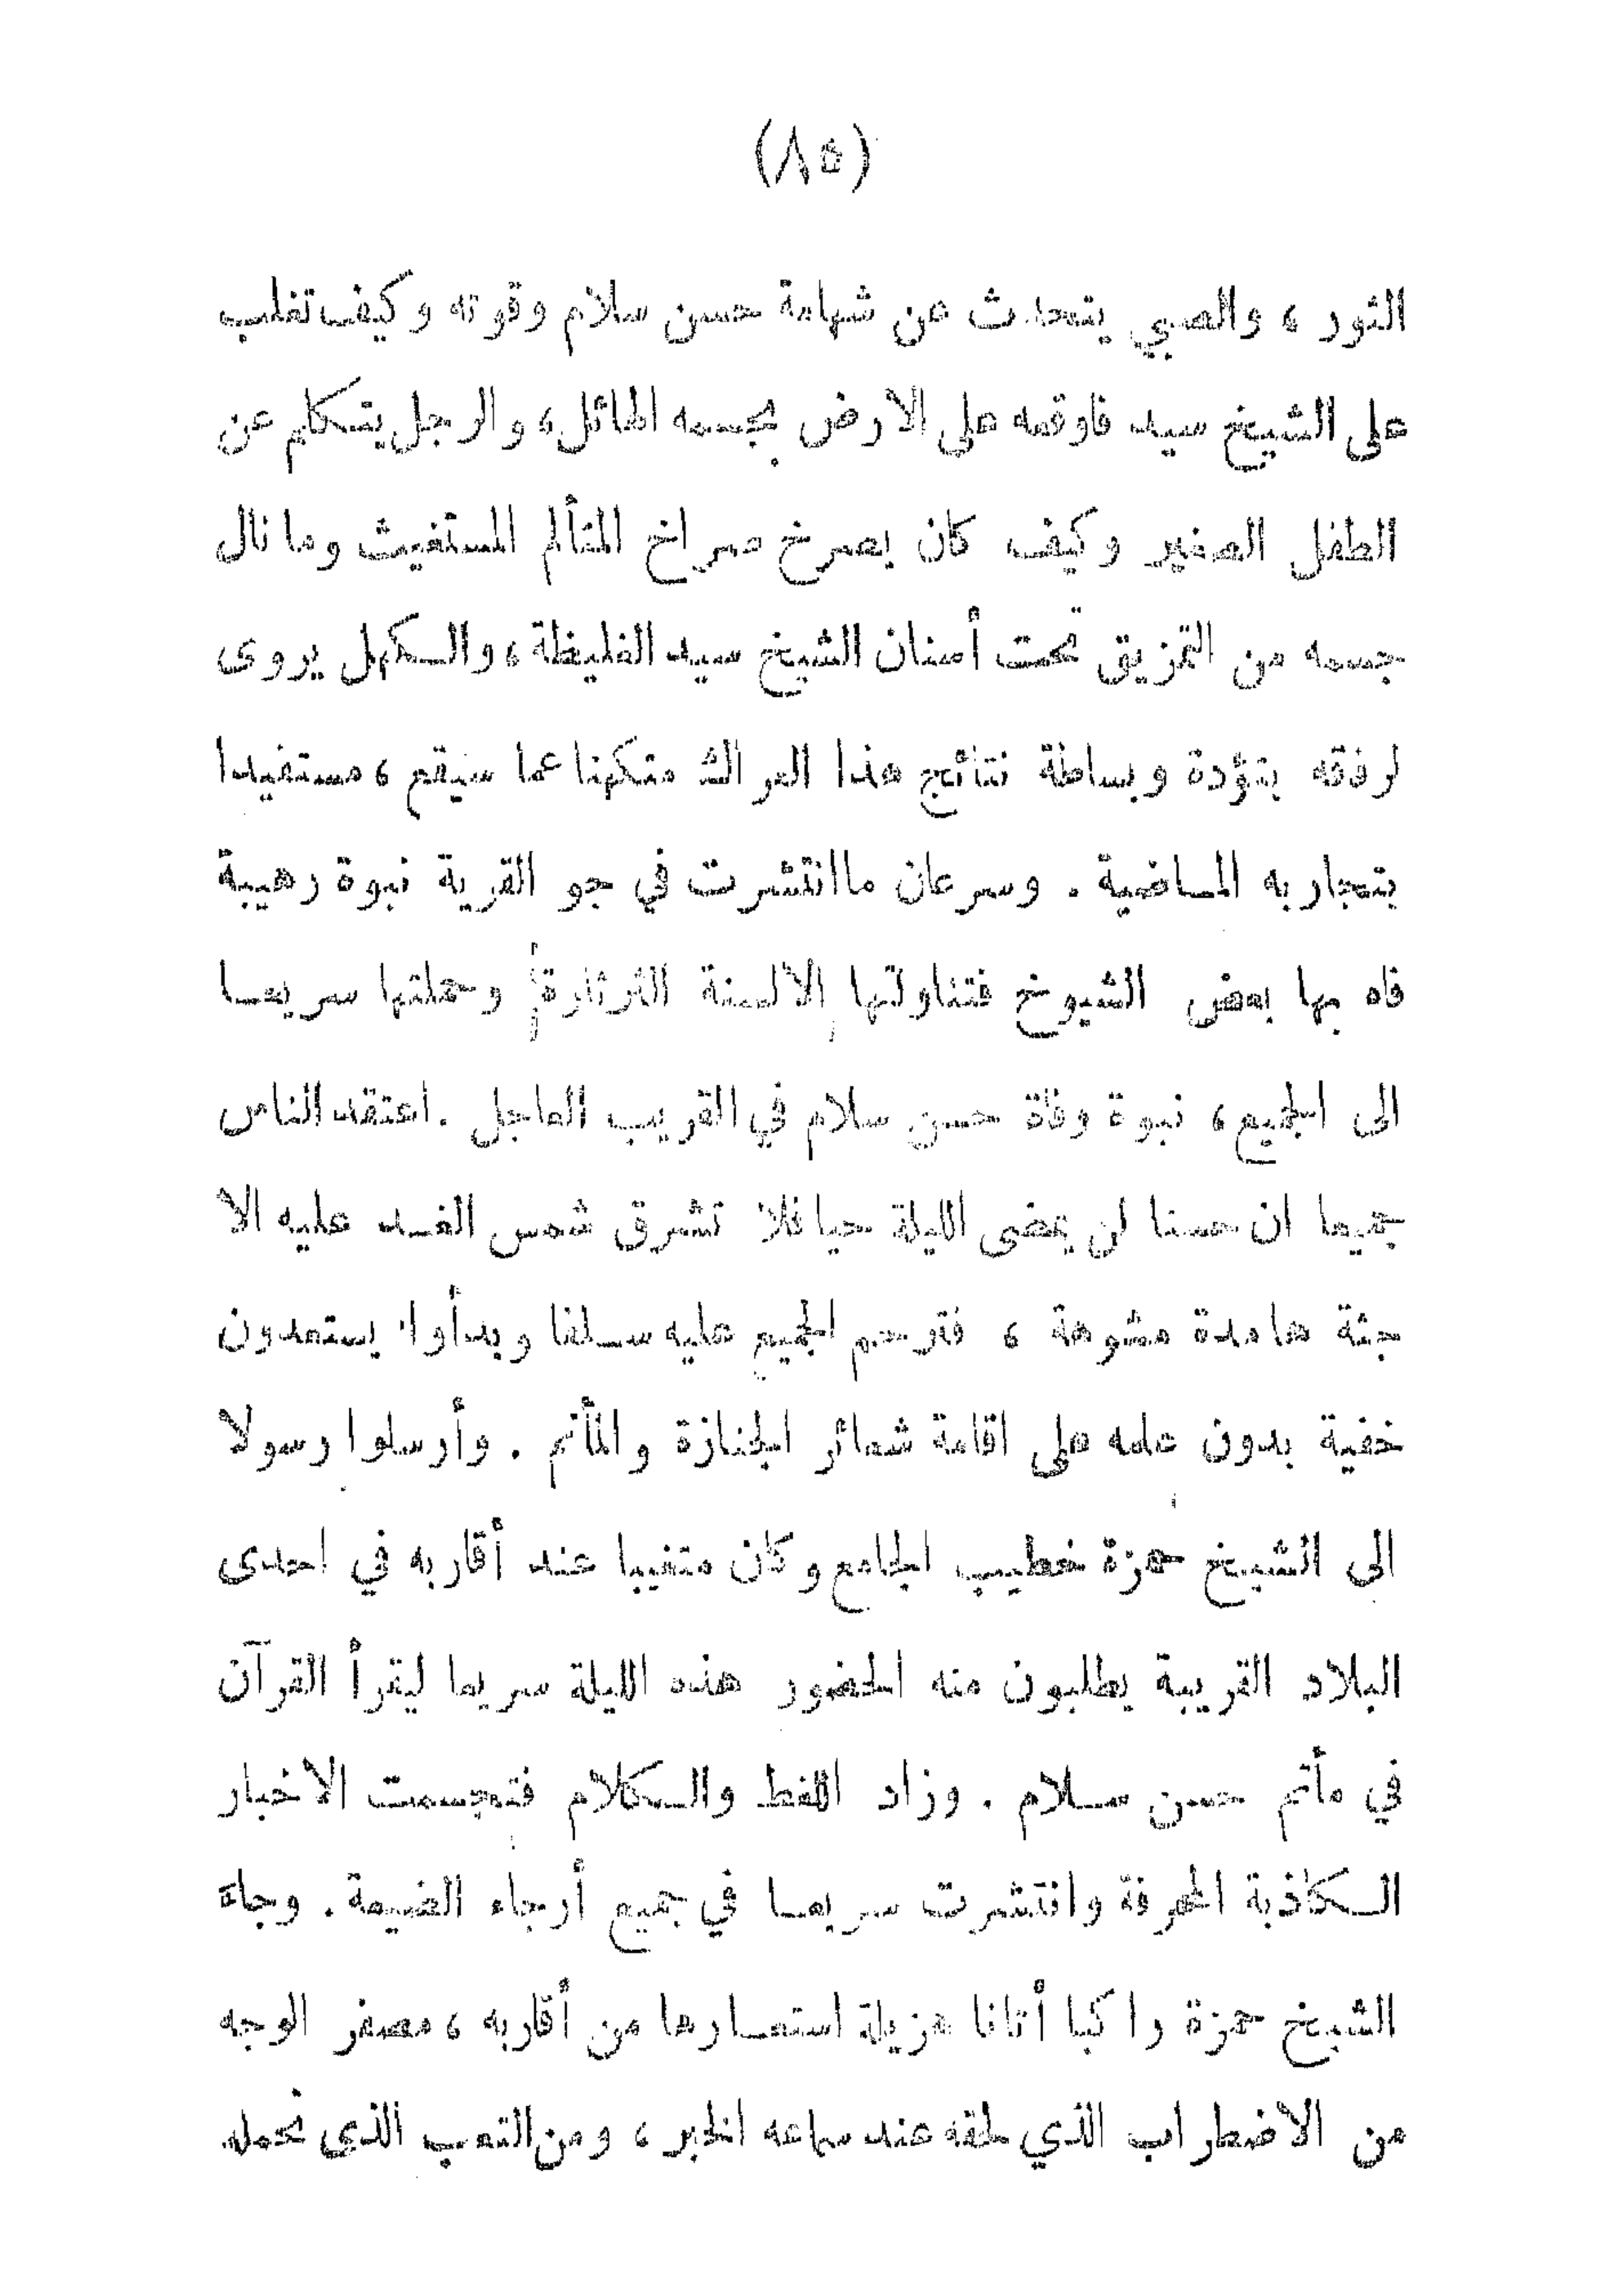 (٨٥)
الثور ، والصبي يتحدث عن شهامة حسن سلام وقوته وكيف تغلب
على الشيخ سيد فاوقعه على الارض بجسمه الهائل، والرجل يتكلم عن
الطفل الصغير وكيف كان يصرخ صراخ المتألم المستغيث وما نال
جسمه من التمزيق تحت أسنان الشيخ سيد الغليظة، والكهل يروى
لرفقه بتؤدة وبساطة نتائج هذا العراك متكهنا عما سيقع ، مستفيدا
بتجاربه الماضية . وسرعان ماانتشرت في جو القرية نبوة رهيبة
فاه بها بعض الشيوخ فتناولتها الالسنة الثرثارة وحملتها سريعا
الى الجميع، نبوة وفاة حسن سلام في القريب العاجل . اعتقد الناس
جميعا ان حسنا لن يمضى الليلة حيا فلا تشرق شمس الغد عليه الا
جثة هامدة مشوهة ، فترحم الجميع عليه سلفا وبدأوا يستعدون
خفية بدون علمه على اقامة شعائر الجنازة والمأتم . وأرسلوا رسولا
الى الشيخ حمزة خطيب الجامع وكان متغيبا عند أقاربه في احدى
البلاد القريبة يطلبون منه الحضور هذه الليلة سريعا ليقرأ القرآن
في مأتم حسن سلام . وزاد اللغط والكلام فتجسمت الاخبار
الكاذبة المحرفة وانتشرت سريعا في جميع أرجاء الضيعة . وجاء
الشيخ حمزة راكبا أتانا هزيلة استعارها من أقاربه ، مصفر الوجه
من الاضطراب الذي لحقه عند سماعه الخبر ، ومن التعب الذى تحمله